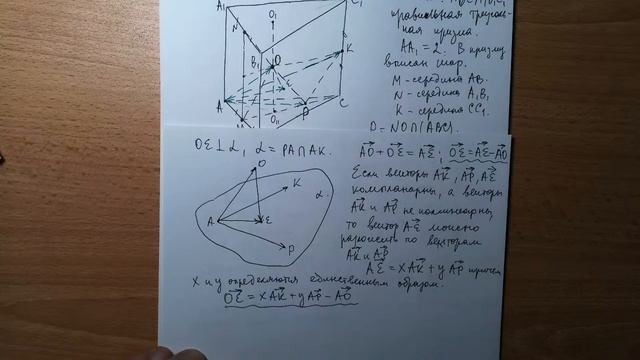 A₁
C₁
O₁
N
B₁
O
K
E
A
P
C
O₁₁
M
правильная треуголь-
ная призма.
AA₁ = 2. В призму
вписан шар.
M - середина AB.
N - середина A₁B₁
K - середина CC₁
P = NO∩(ABC).
OE ⊥ α, α = PA∩AK.
O
K
α
A
E
P
AO + OE = AE; OE = AE - AO
Если векторы AK, AP, AE
компланарны, а векторы
AK и AP не коллинеарны,
то вектор AE можно
разложить по векторам
AK и AP
AE = xAK + yAP причем
x и y определяются единственным образом.
OE = xAK + yAP - AO